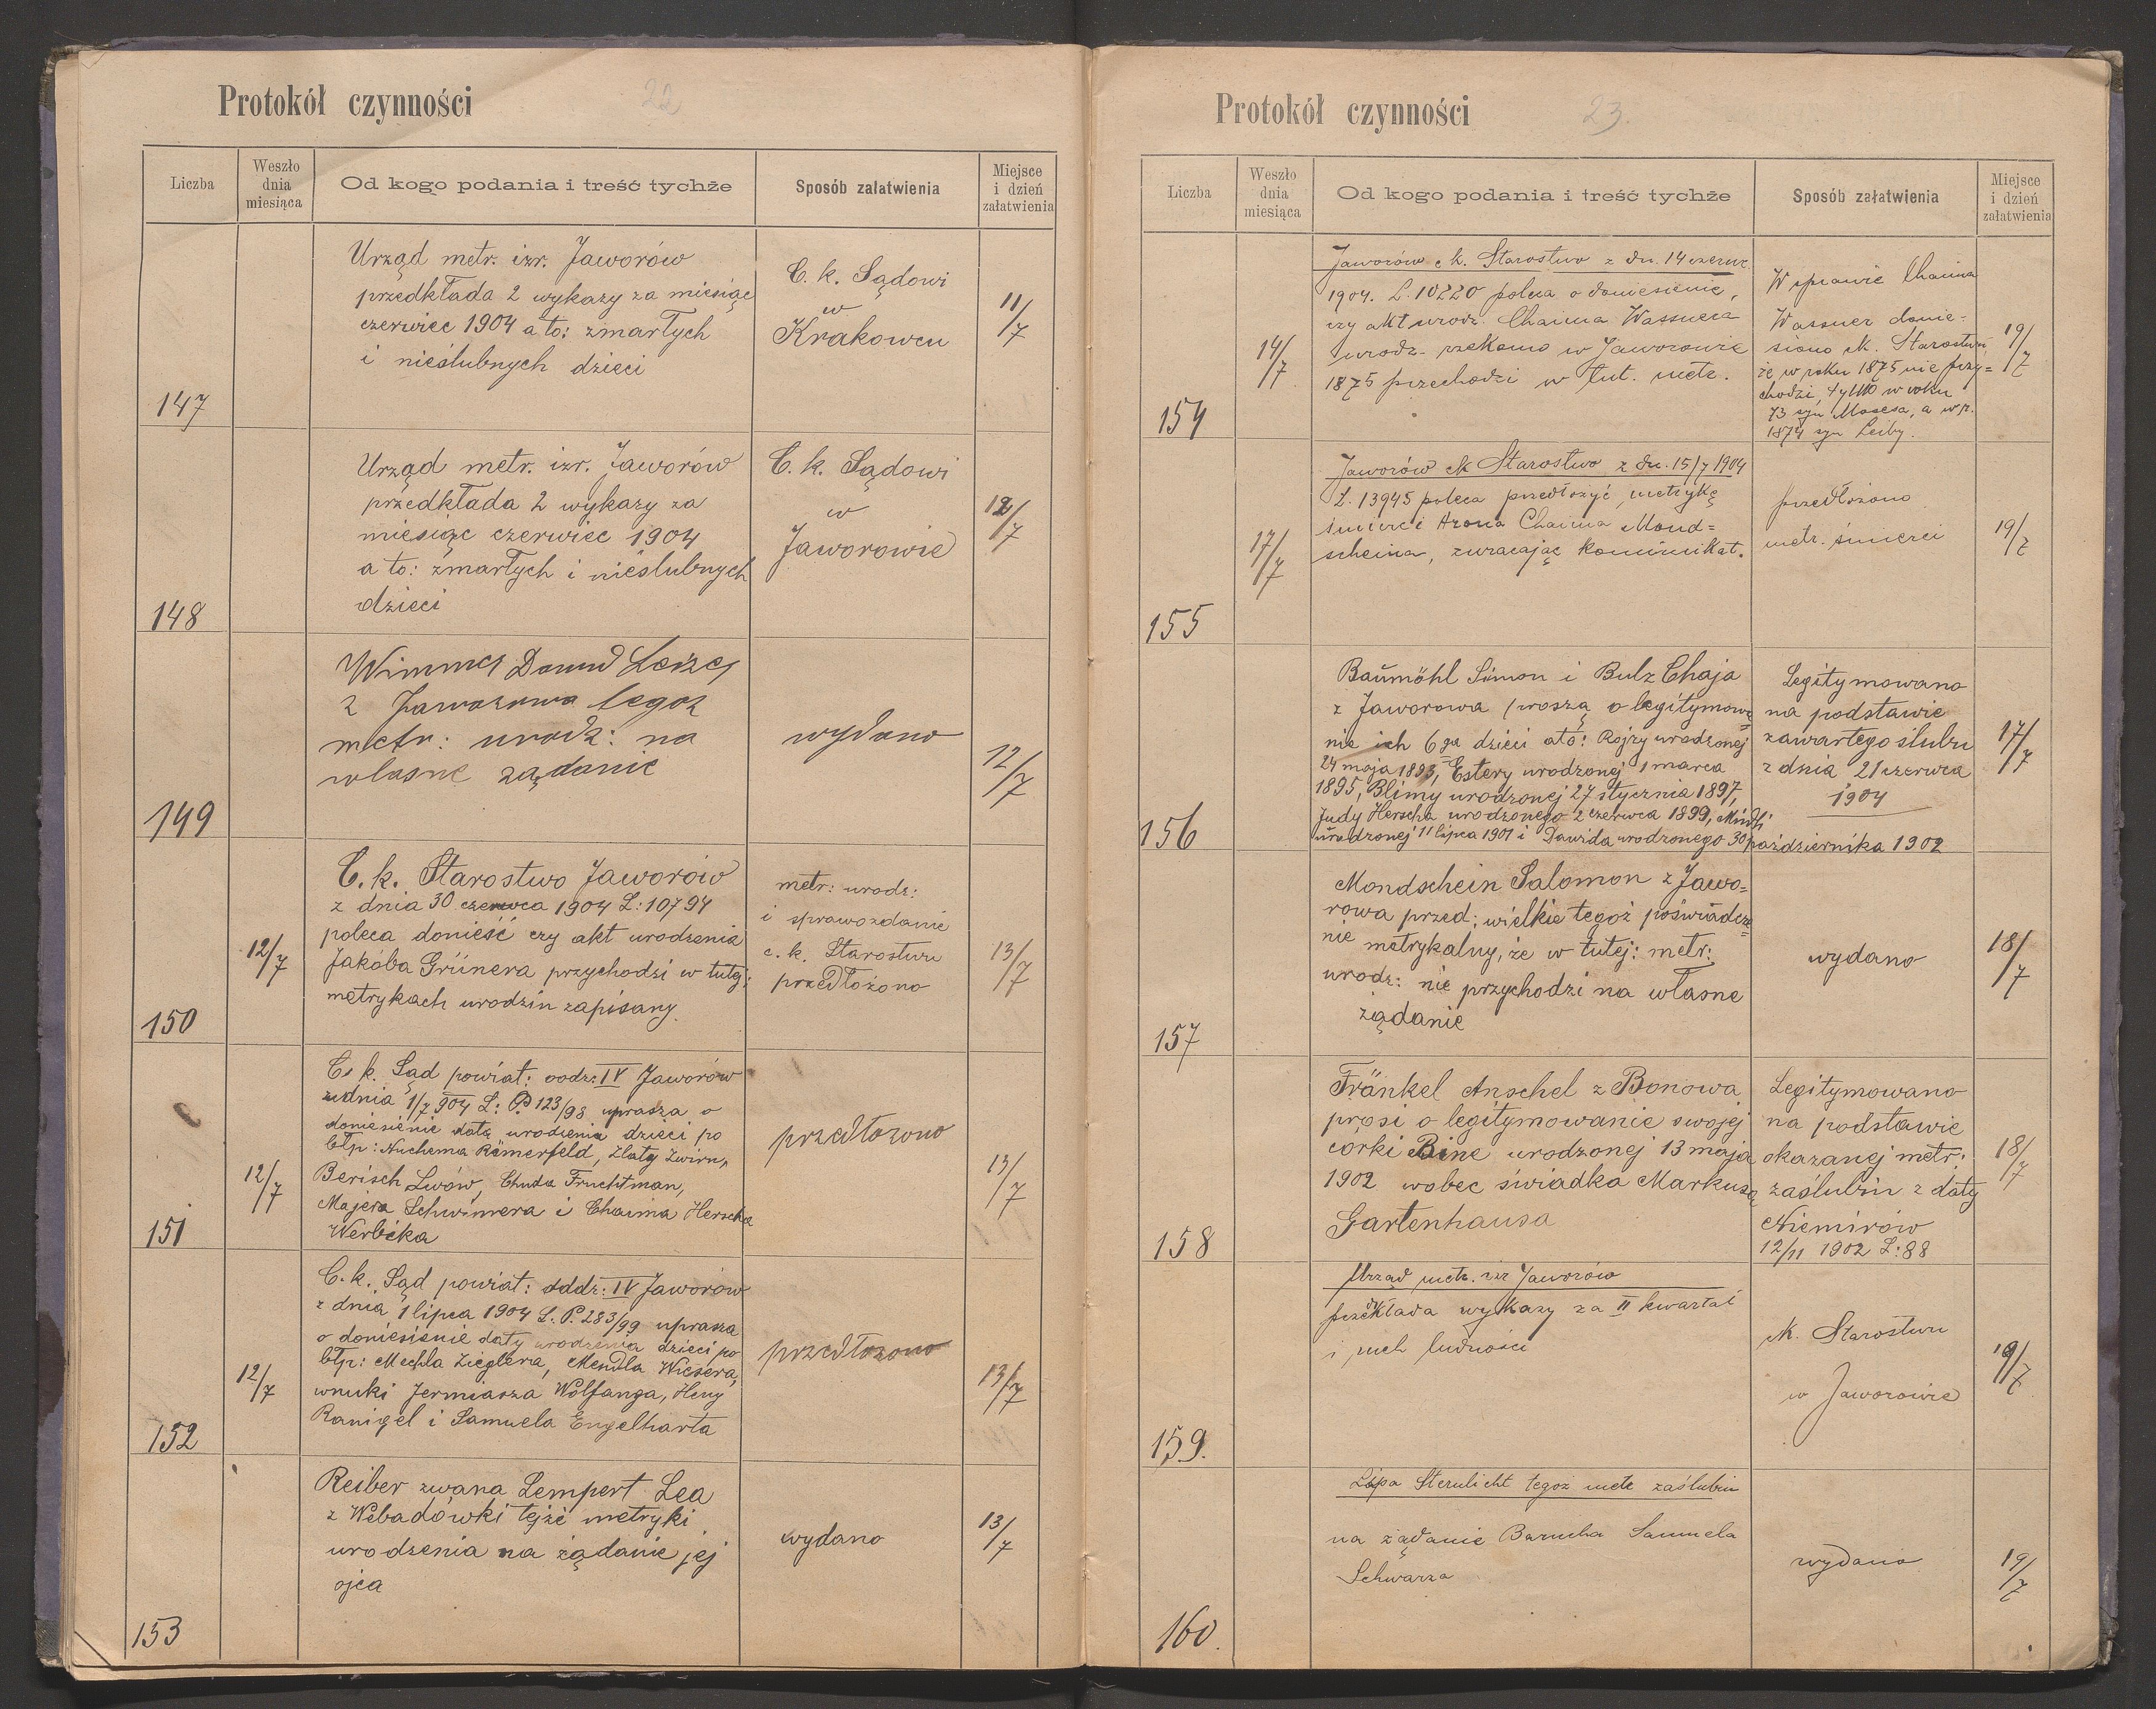 Protokół czynności
22
Liczba
Weszło dnia miesiąca
Od kogo podania i treść tychże
Sposób załatwienia
Miejsce i dzień załatwienia
147
Urząd metr. izr. Jaworów
przedkłada 2 wykazy za miesiąc
czerwiec 1904 a to: zmarłych
i nieślubnych dzieci
C. k. Sądowi
w
Krakowcu
11/7
148
Urząd metr. izr. Jaworów
przedkłada 2 wykazy za
miesiąc czerwiec 1904
a to: zmarłych i nieślubnych
dzieci
C. k. Sądowi
w
Jaworowie
12/7
149
z Jaworowa tegoż
metr: urodz: na
własne żądanie
wydano
12/7
150
12/7
C. k. Starostwo Jaworów
z dnia 30 czerwca 1904 L: 10794
poleca donieść czy akt urodzenia
Jakóba Grünera przychodzi w tutej:
metrykach urodzin zapisany
metr: urodz:
i sprawozdanie
c. k. Starostwu
przedłożono
13/7
151
12/7
C. k. Sąd powiat: oddz: IV Jaworów
z dnia 1/7 904 L: P 123/98 uprasza o
doniesienie datę urodzenia dzieci po
błp: Nuchema Römerfeld, Zlaty Zwirn,
Berisch Lwów, Chuda Fruchtman,
Majera Schwimera i Chaima Herscha
Werbika
przedłożono
13/7
152
12/7
C. k. Sąd powiat: oddz: IV Jaworów
z dnia 1 lipca 1904 L. P. 283/99 uprasza
o doniesienie daty urodzenia dzieci po
błp: Mechla Zieglera, Mendla Wiesera,
wnuki Jermiasza Wolfanga, Heny
Ranigel i Samuela Engelharta
przedłożono
13/7
153
Reiber zwana Lempert Lea
z Webadówki tejże metryki
urodzenia na żądanie jej
ojca
wydano
13/7
Protokół czynności
23.
Liczba
Weszło dnia miesiąca
Od kogo podania i treść tychże
Sposób załatwienia
Miejsce i dzień załatwienia
154
14/7
Jaworów ck. Starostwo z dn. 14 czerwc.
1904. L. 10220 poleca o doniesienie,
czy akt urodz. Chaima Wassnera
urodz. rzekomo w Jaworowie
1875 przechodzi w tut. metr.
W sprawie Chaima
Wassner donie-
siono ck. Starostwu
że w roku 1875 nie przy-
chodzi, tylko w roku
73 syn Mosesa, a w r.
1874 syn Leiby.
19/7
155
17/7
Jaworów ck Starostwo z dn. 15/7 1904
L. 13945 poleca przedłożyć metrykę
śmierci Arona Chaima Mond-
scheina, zwracając komunikat.
przedłożono
metr. śmierci
19/7
156
Baumöhl Simon i Bulz Chaja
z Jaworowa proszą o legitymowa
nie ich 6ga dzieci a to: Rojzy urodzonej
24 maja 1893, Estery urodzonej 1 marca
1895, Blimy urodzonej 27 stycznia 1897,
Judy Herscha urodzonego 2 czerwca 1899, Mindli
urodzonej 11 lipca 1901 i Dawida urodzonego 30 października 1902
Legitymowano
na podstawie
zawartego ślubu
z dnia 21 czerwca
1904
17/7
157
Mondschein Salomon z Jawo-
rowa przed: wielkie tegoż poświadcze
nie metrykalny, że w tutej: metr:
urodz: nie przychodzi na własne
żądanie
wydano
18/7
158
Fränkel Anschel z Bonowa
prosi o legitymowanie swojej
córki Bine urodzonej 13 maja
1902 wobec świadka Markusa
Gartenhausa
Legitymowano
na podstawie
okazanej metr:
zaślubin z daty
Niemirów
12/11 1902 L: 88
18/7
159.
Urząd metr. izr Jaworów
przedkłada wykazy za II kwartał
i ruch ludności
ck. Starostwu
w Jaworowie
19/7
160.
Lipa Sternlicht tegoż metr zaślubin
na żądanie Barucha Samuela
Schwarza
wydano
19/7